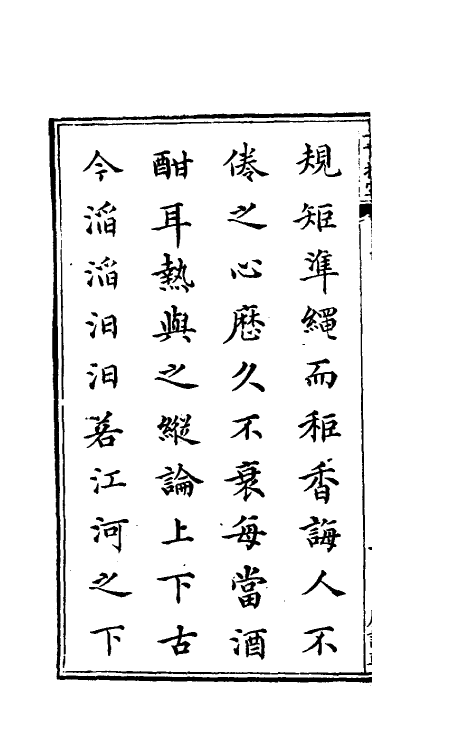 規矩準繩而秬香誨人不
倦之心歷久不衰每當酒
酣耳熱與之縱論上下古
今滔滔汩汩若江河之下